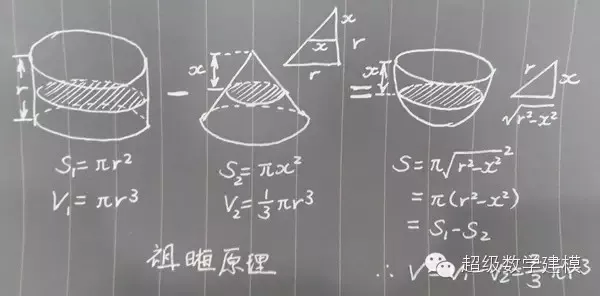 r
−
x
x
x
r
r
=
x
r
x
√r²−x²
S₁=πr²
V₁=πr³
S₂=πx²
V₂=1/3πr³
S=π√r²−x²²
=π(r²−x²)
=S₁−S₂
∴ V=V₁−V₂=2/3πr³
祖暅原理
超级数学建模